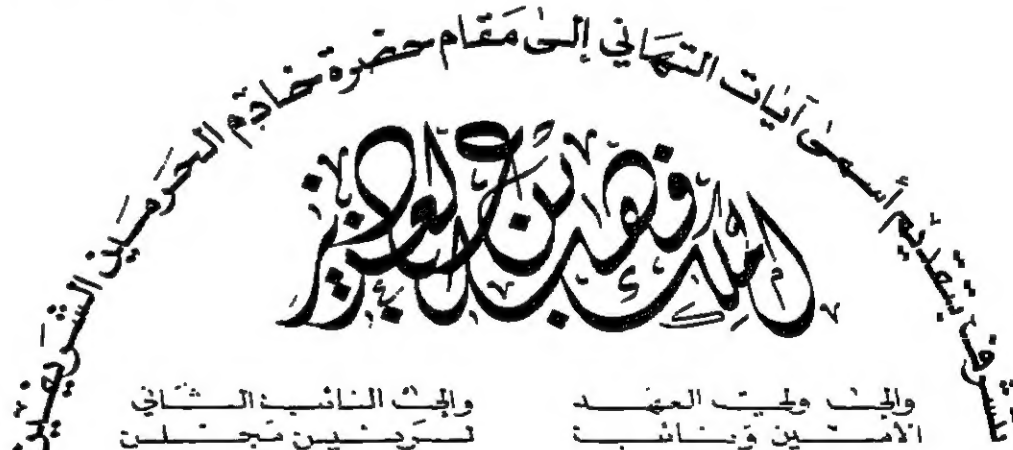 تتشرف بتقديم أسمى آيات التهاني إلى مقام حضرة خادم الحرمين الشريفين
الملك فهد بن عبد العزيز
وإلى ولي العهد
الأمين ونائب
وإلى النائب الثاني
لرئيس مجلس